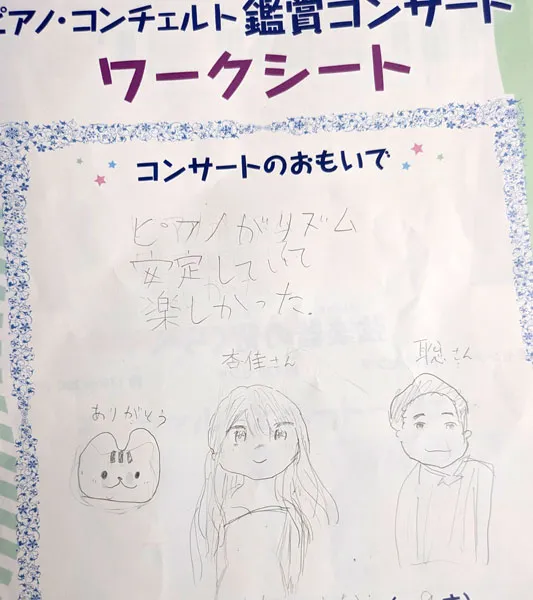 ピアノ・コンチェルト鑑賞コンサート
ワークシート
コンサートのおもいで
ピアノがリズム
安定していて
楽しかった.
杏佳さん
聡さん
ありがとう